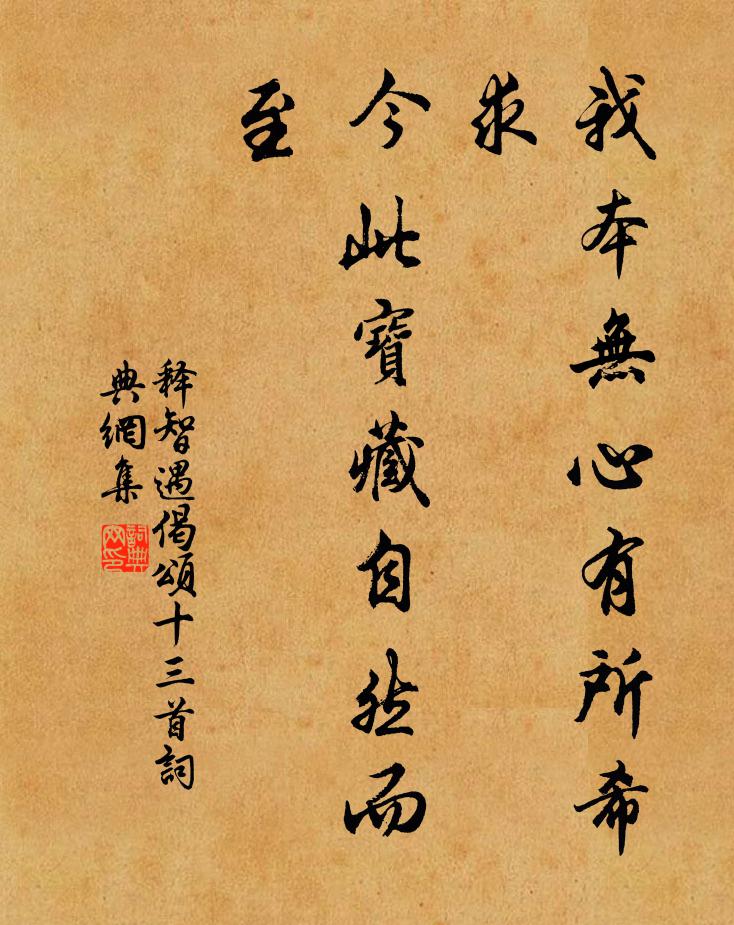 我本無心有所希
求
今此寶藏自然而
至
释智遇偈頌十三首詞
典網集
詞典
网印